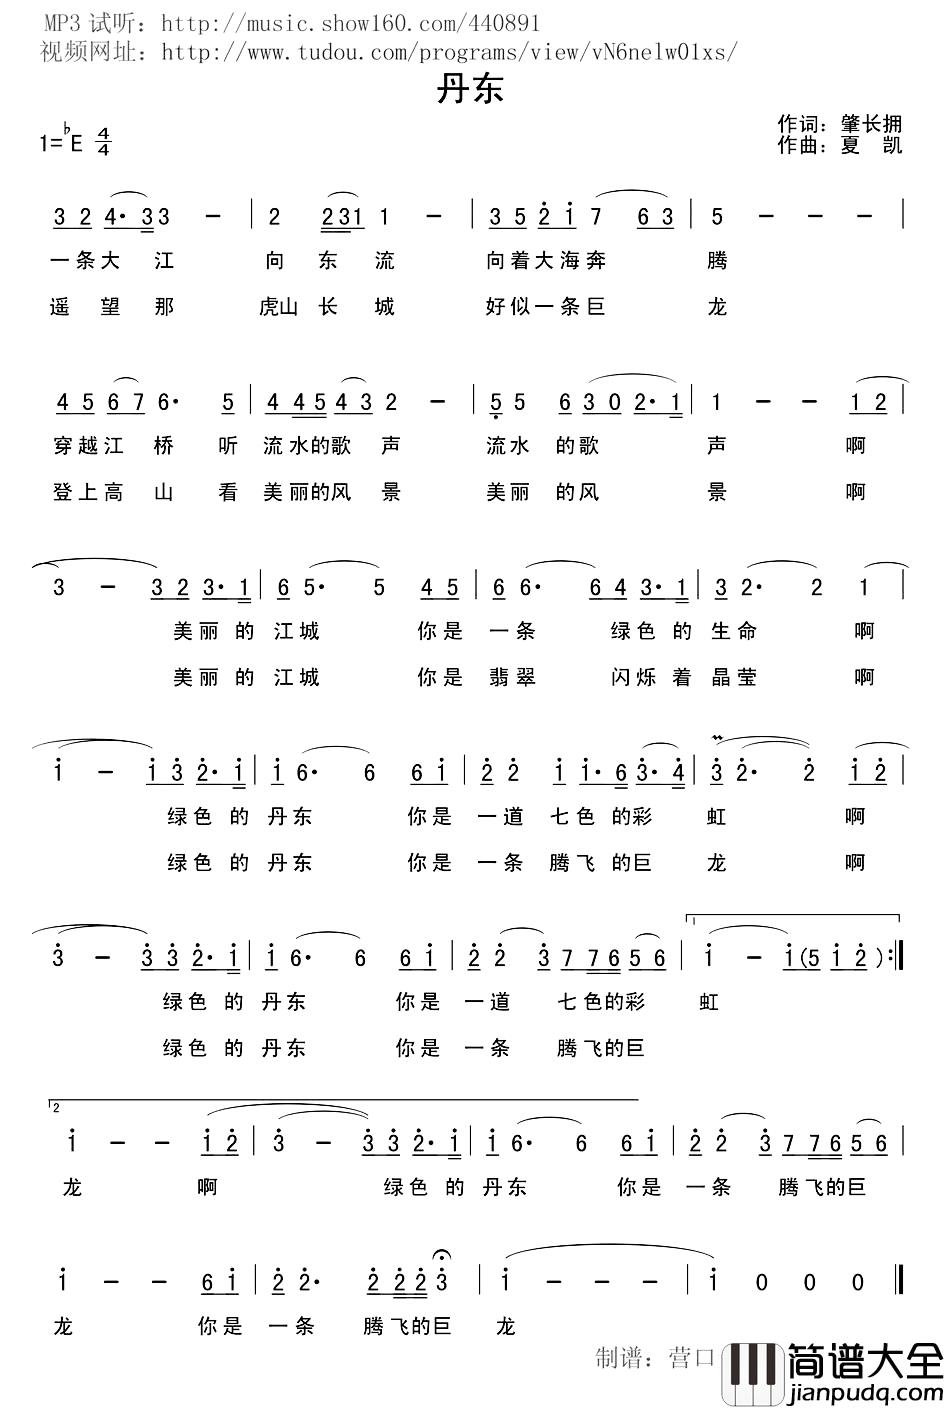 MP3 试听：http://music.show160.com/440891
视频网址：http://www.tudou.com/programs/view/vN6nelw0lxs/
丹东
作词：肇长拥
1=♭E 4/4
作曲：夏 凯
3 2 4· 3 3 - | 2 2 3 1 1 - | 3 5 2̇ i̇ 7 6 3 | 5 - - - |
一条大 江 向 东 流 向着大海奔 腾
遥 望 那 虎山 长 城 好似一条巨 龙
4 5 6 7 6· 5 | 4 4 5 4 3 2 - | 5̣ 5 6 3 0 2· 1 | 1 - - 1 2 |
穿越江 桥 听 流水的歌 声 流水 的歌 声 啊
登上高 山 看 美丽的风 景 美丽 的风 景 啊
3 - 3 2 3· 1 | 6 5· 5 4 5 | 6 6· 6 4 3· 1 | 3 2· 2 1 |
美丽 的 江城 你是 一条 绿色 的 生命 啊
美丽 的 江城 你是 翡翠 闪烁 着 晶莹 啊
i̇ - i̇ 3̇ 2̇· i̇ | i̇ 6· 6 6 i̇ | 2̇ 2̇ i̇ i̇· 6 3̇· 4̇ | 3̇ 2̇· 2̇ i̇ 2̇ |
绿色 的 丹东 你是 一道 七色 的彩 虹 啊
绿色 的 丹东 你是 一条 腾飞 的巨 龙 啊
3̇ - 3̇ 3̇ 2̇· i̇ | i̇ 6· 6 6 i̇ | 2̇ 2̇ 3̇ 7 7 6 5 6 | 1 i̇ - i̇ (5 i̇ 2̇) :‖
绿色 的 丹东 你是 一道 七色的彩 虹
绿色 的 丹东 你是 一条 腾飞的巨
2 i̇ - - i̇ 2̇ | 3̇ - 3̇ 3̇ 2̇· i̇ | i̇ 6· 6 6 i̇ | 2̇ 2̇ 3̇ 7 7 6 5 6 |
龙 啊 绿色 的 丹东 你是 一条 腾飞的巨
i̇ - - 6 i̇ | 2̇ 2̇· 2̇ 2̇ 2̇ 3̇ | i̇ - - - | i̇ 0 0 0 ‖
龙 你是 一条 腾飞的巨 龙
制谱：营口
简谱大全
jianpudq.com